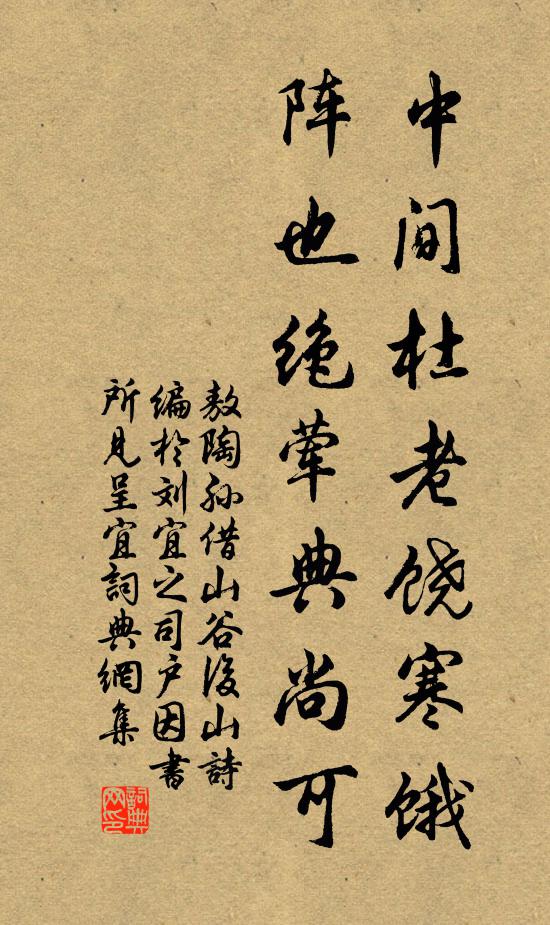 中间杜老饶寒饿
阵也绝荤典尚可
敖陶孙借山谷後山詩
编於刘宜之司户因書
所见呈宜詞典網集
詞典网印